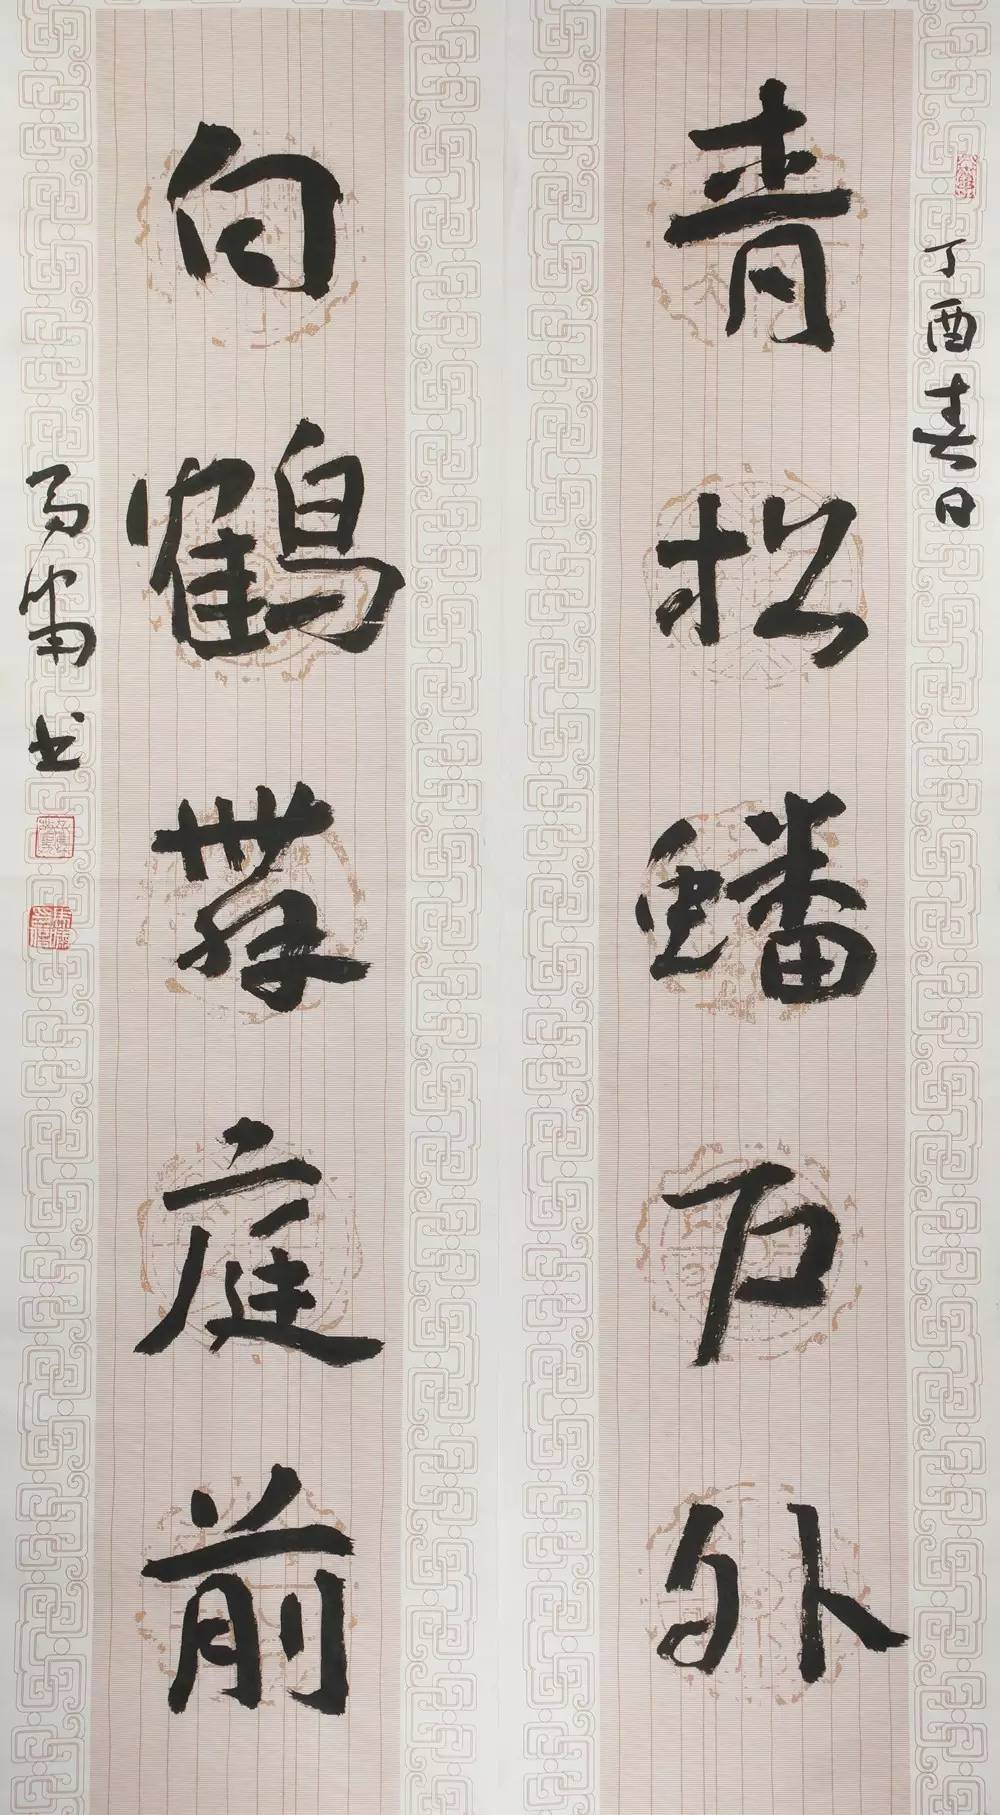 丁酉春日
青松蟠户外
白鶴舞庭前
马 书